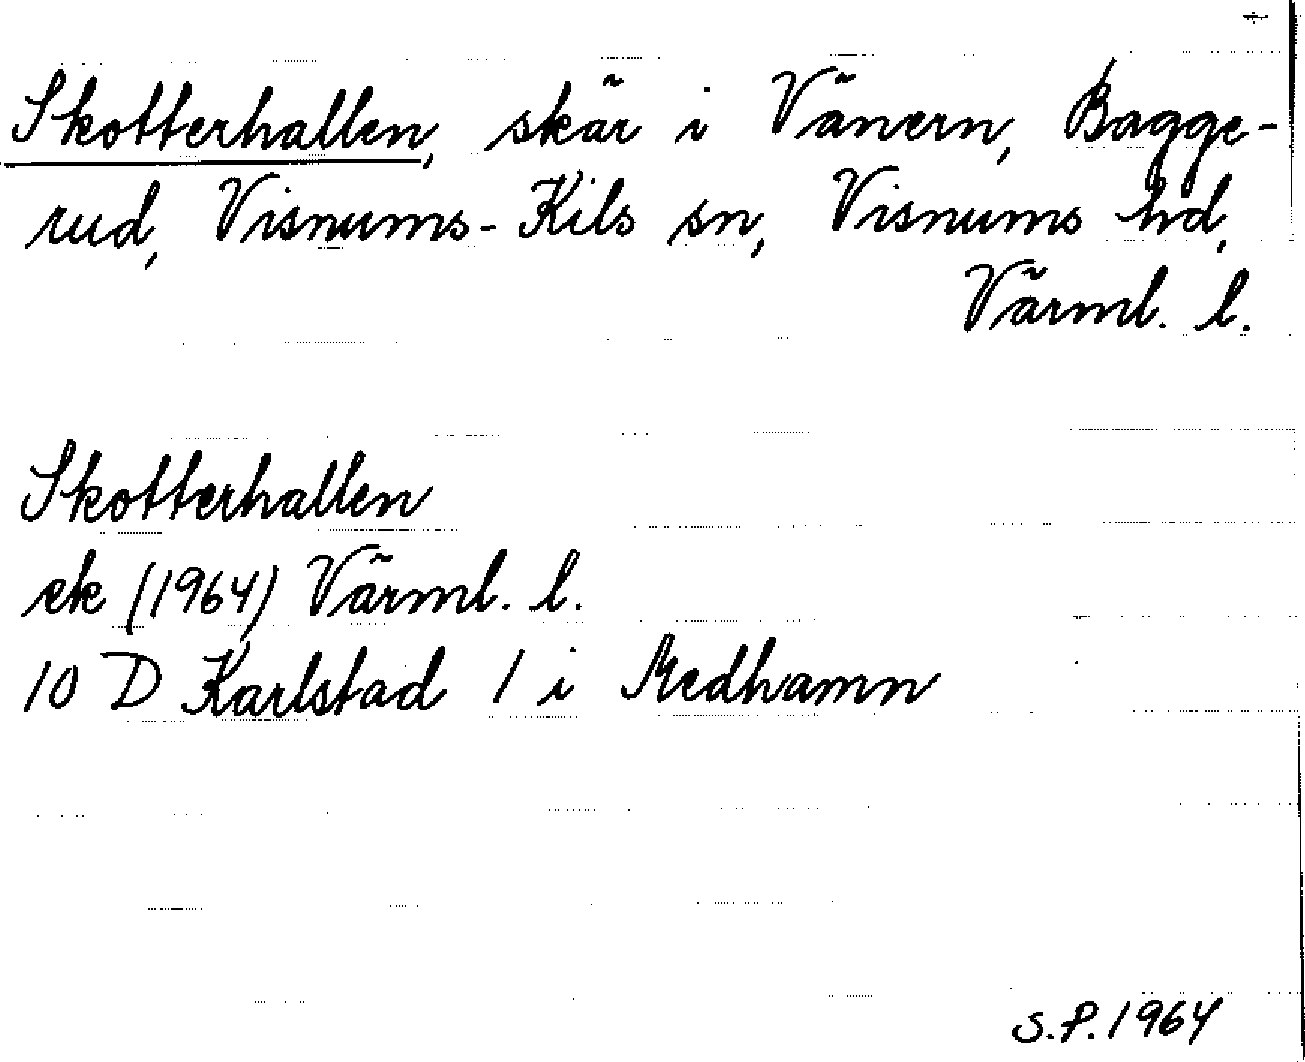 Skotterhallen, skär i Vänern, Bagge-
rud, Visnums-Kils sn, Visnums hd,
Värml. l.
Skotterhallen
ek (1964) Värml. l.
10 D Karlstad 1 i Medhamn
S.P. 1964